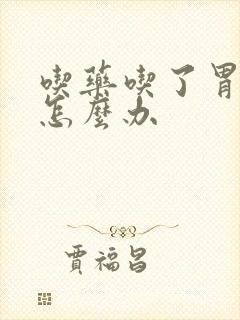 喫藥喫了胃
怎麼办
賈福昌